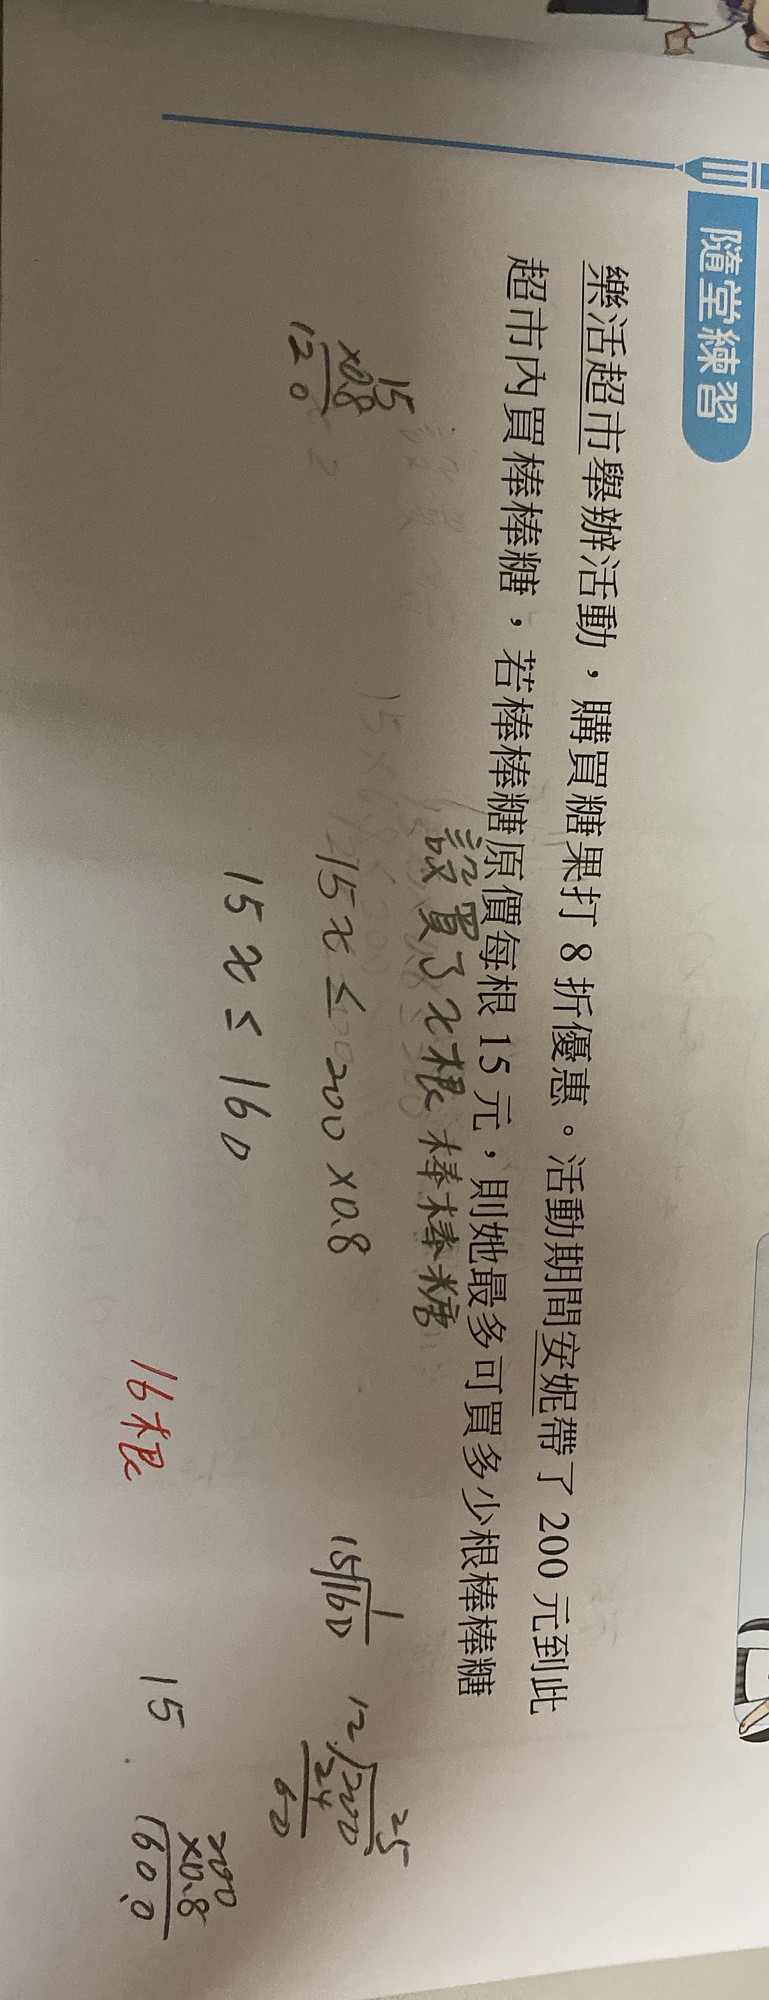 隨堂練習
樂活超市舉辦活動，購買糖果打 8 折優惠。活動期間安妮帶了 200 元到此
超市內買棒棒糖，若棒棒糖原價每根 15 元，則她最多可買多少根棒棒糖
設買了x根棒棒糖
15
×0.8
12 0
15x ≤ 200×0.8
15x ≤ 160
16根
1
15/160
25
12/200
24
60
15
200
×0.8
160.0